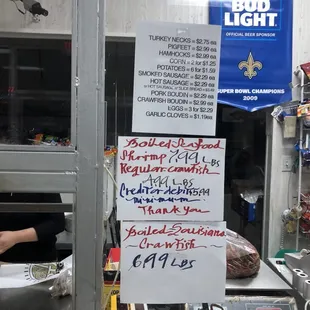 BUD LIGHT
OFFICIAL BEER SPONSOR
SUPER BOWL CHAMPIONS
2009
TURKEY NECKS = $2.75 ea
PIGFEET = $2.99 ea
HAMHOCKS = $2.99 ea
CORN = 2 for $1.25
POTATOES = 6 for $1.59
SMOKED SAUSAGE = $2.29 ea
HOT SAUSAGE = $2.29 ea
PORK BOUDIN = $2.29 ea
CRAWFISH BOUDIN = $2.99 ea
EGGS = 3 for $2.29
GARLIC CLOVES = $1.19ea
Boiled Seafood
Shrimp 7.99 LBS
Regular crawfish
4.99 LBS
Credit or debit
minimum
Thank you
Boiled Louisiana
Crawfish
6.99 LBS